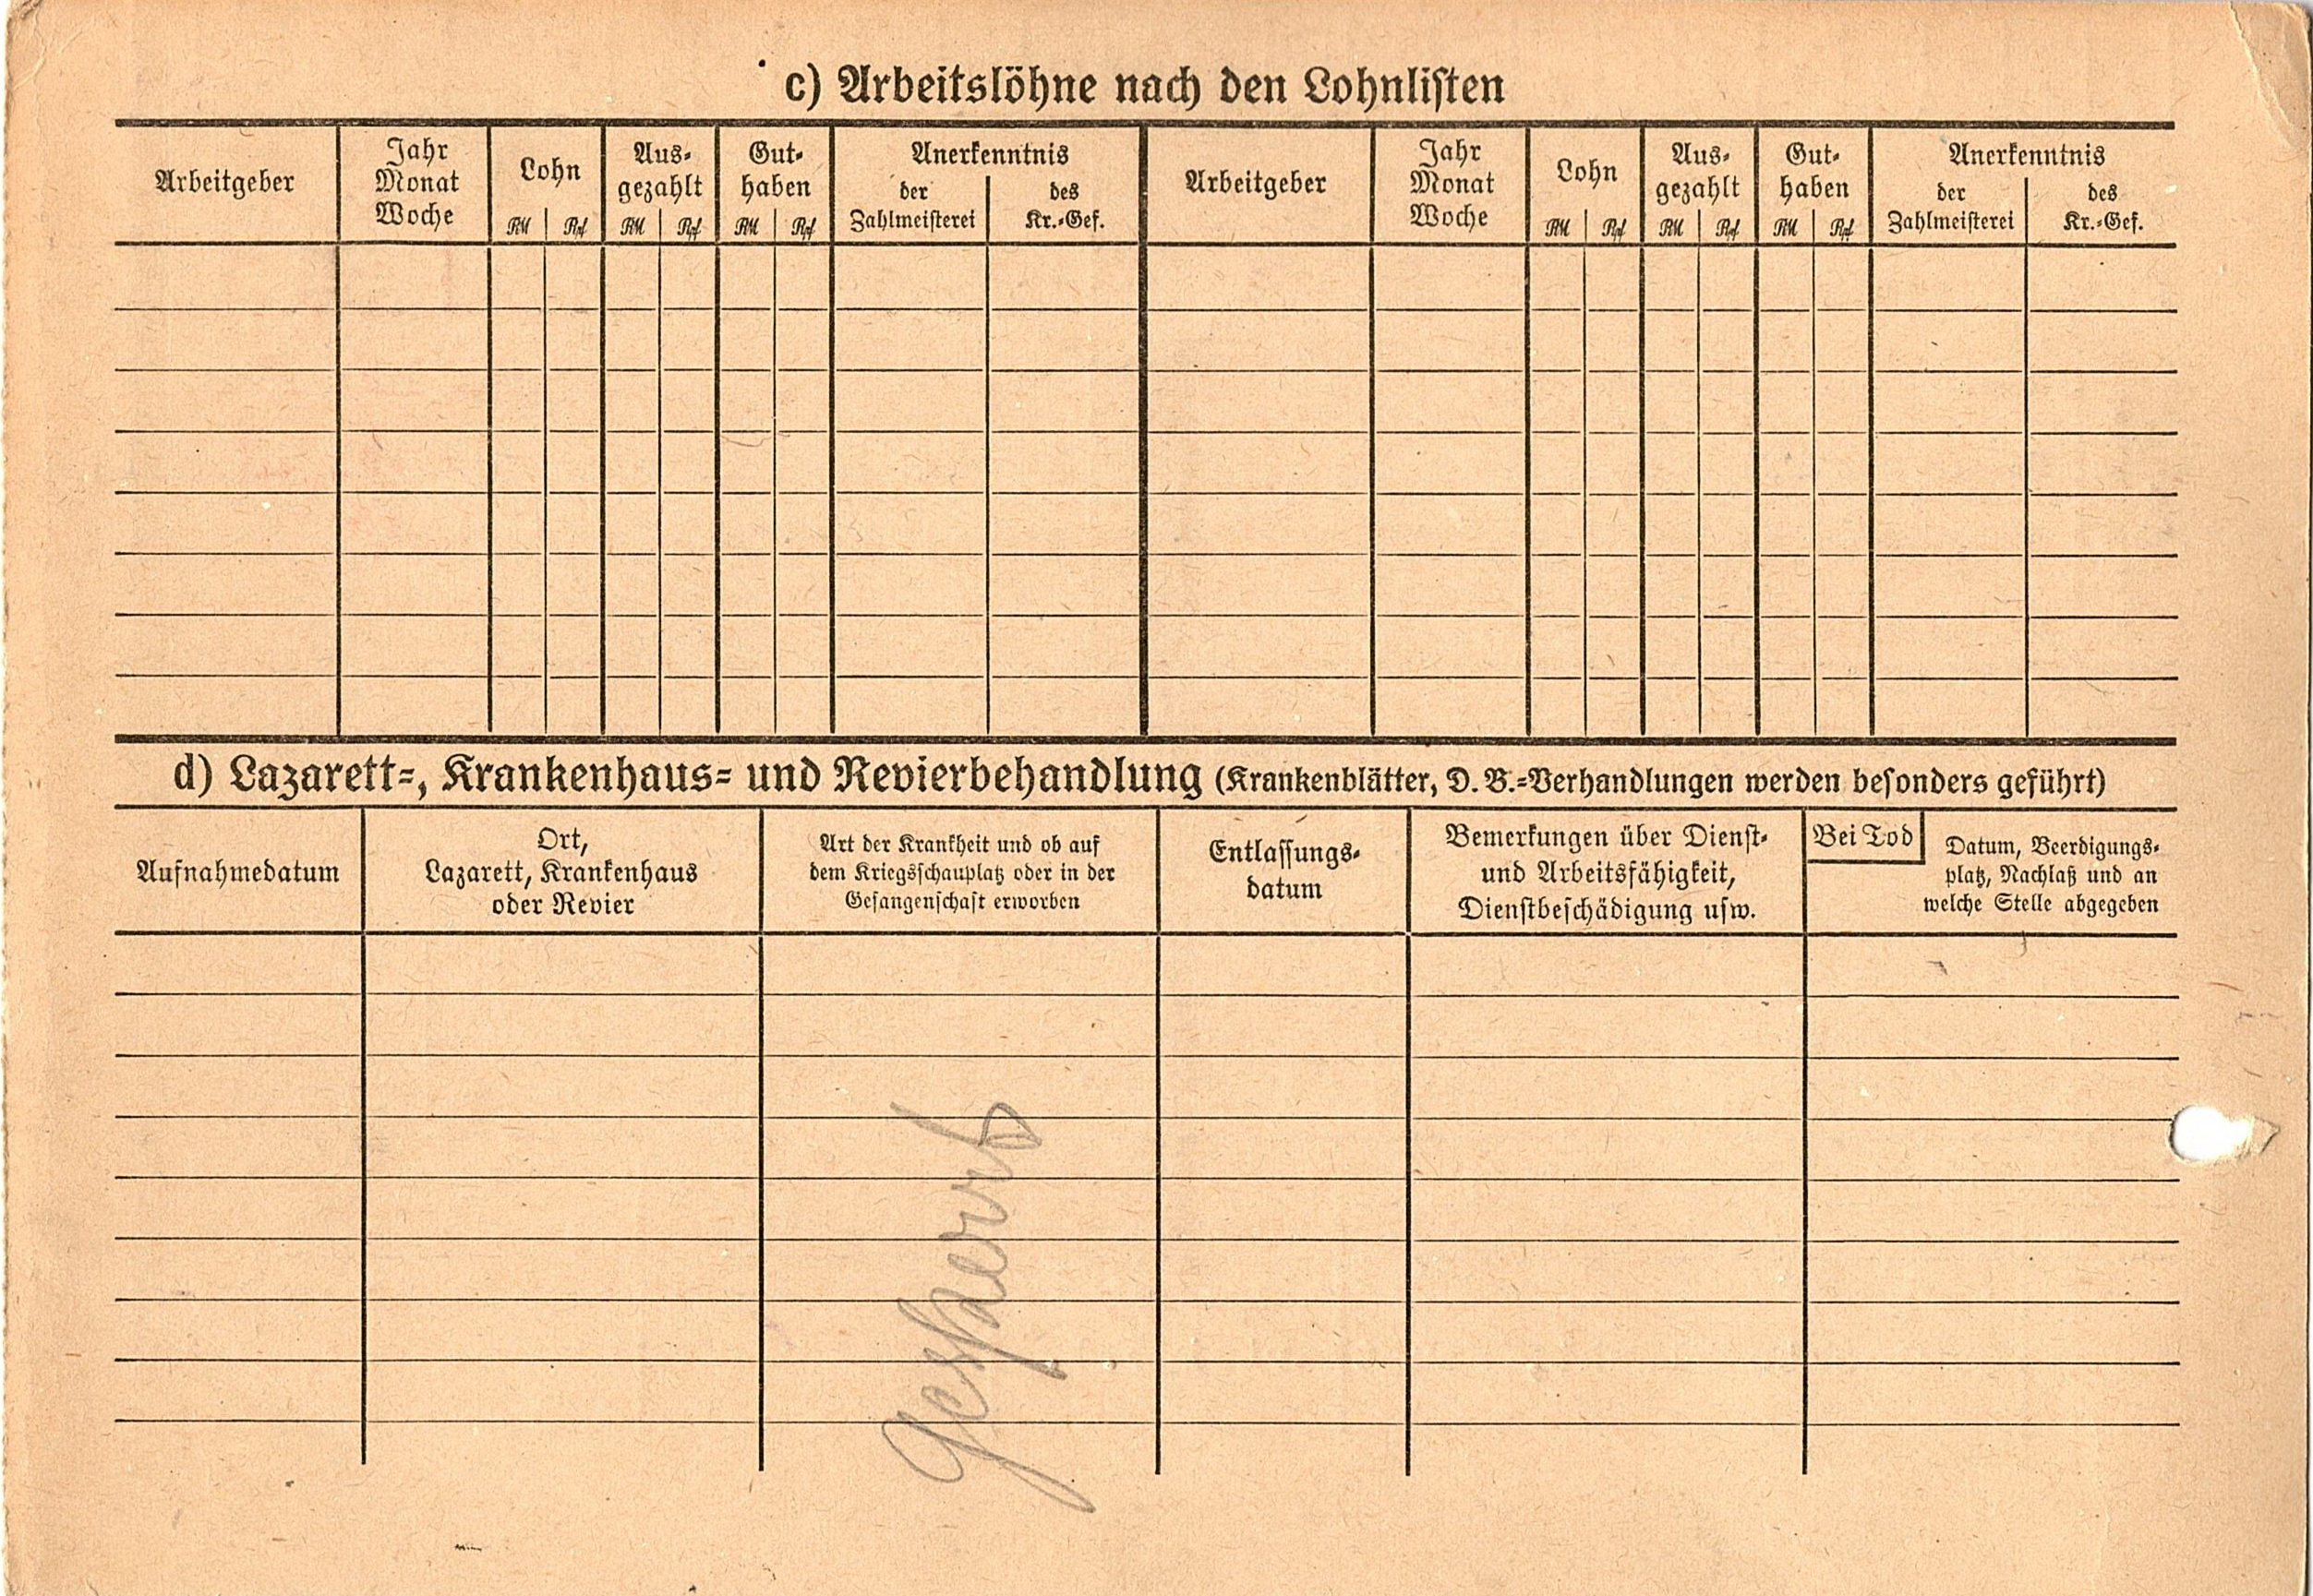 c) Arbeitslöhne nach den Lohnlisten
Arbeitgeber
Jahr
Monat
Woche
Lohn
RM Rpf
Aus-
gezahlt
RM Rpf
Gut-
haben
RM Rpf
Anerkenntnis
der
Zahlmeisterei
des
Kr.-Gef.
Arbeitgeber
Jahr
Monat
Woche
Lohn
RM Rpf
Aus-
gezahlt
RM Rpf
Gut-
haben
RM Rpf
Anerkenntnis
der
Zahlmeisterei
des
Kr.-Gef.
d) Lazarett-, Krankenhaus- und Revierbehandlung (Krankenblätter, D.B.-Verhandlungen werden besonders geführt)
Aufnahmedatum
Ort,
Lazarett, Krankenhaus
oder Revier
Art der Krankheit und ob auf
dem Kriegsschauplatz oder in der
Gefangenschaft erworben
Entlassungs-
datum
Bemerkungen über Dienst-
und Arbeitsfähigkeit,
Dienstbeschädigung usw.
Bei Tod
Datum, Beerdigungs-
platz, Nachlaß und an
welche Stelle abgegeben